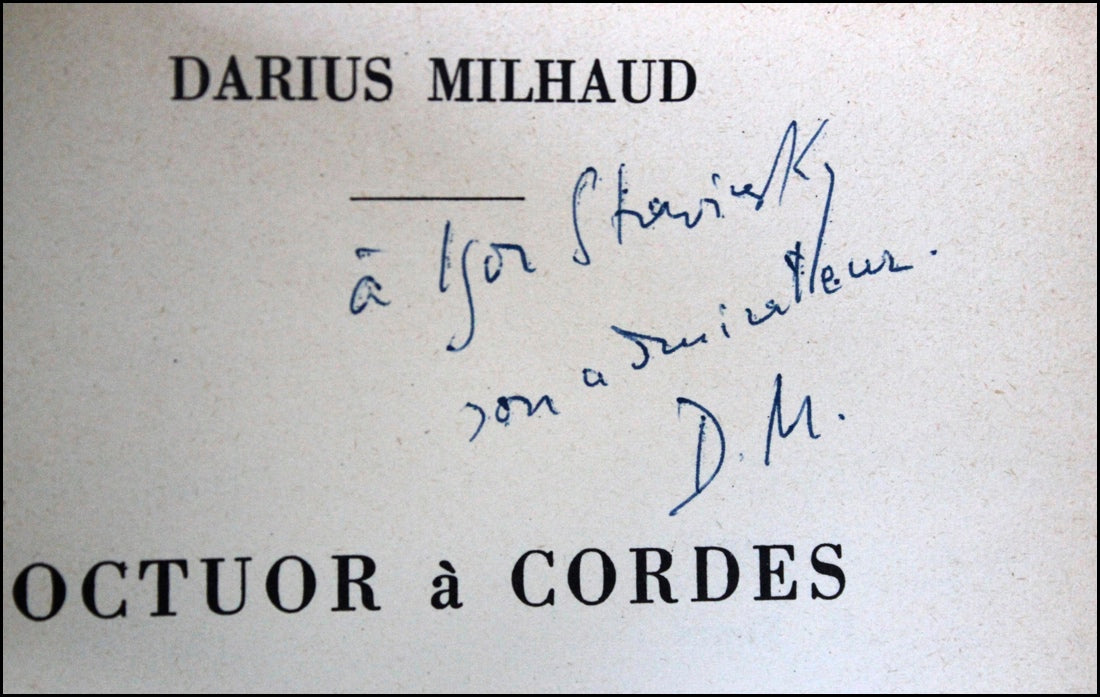 DARIUS MILHAUD
à Igor Stravinsky
son admirateur.
D. M.
OCTUOR à CORDES